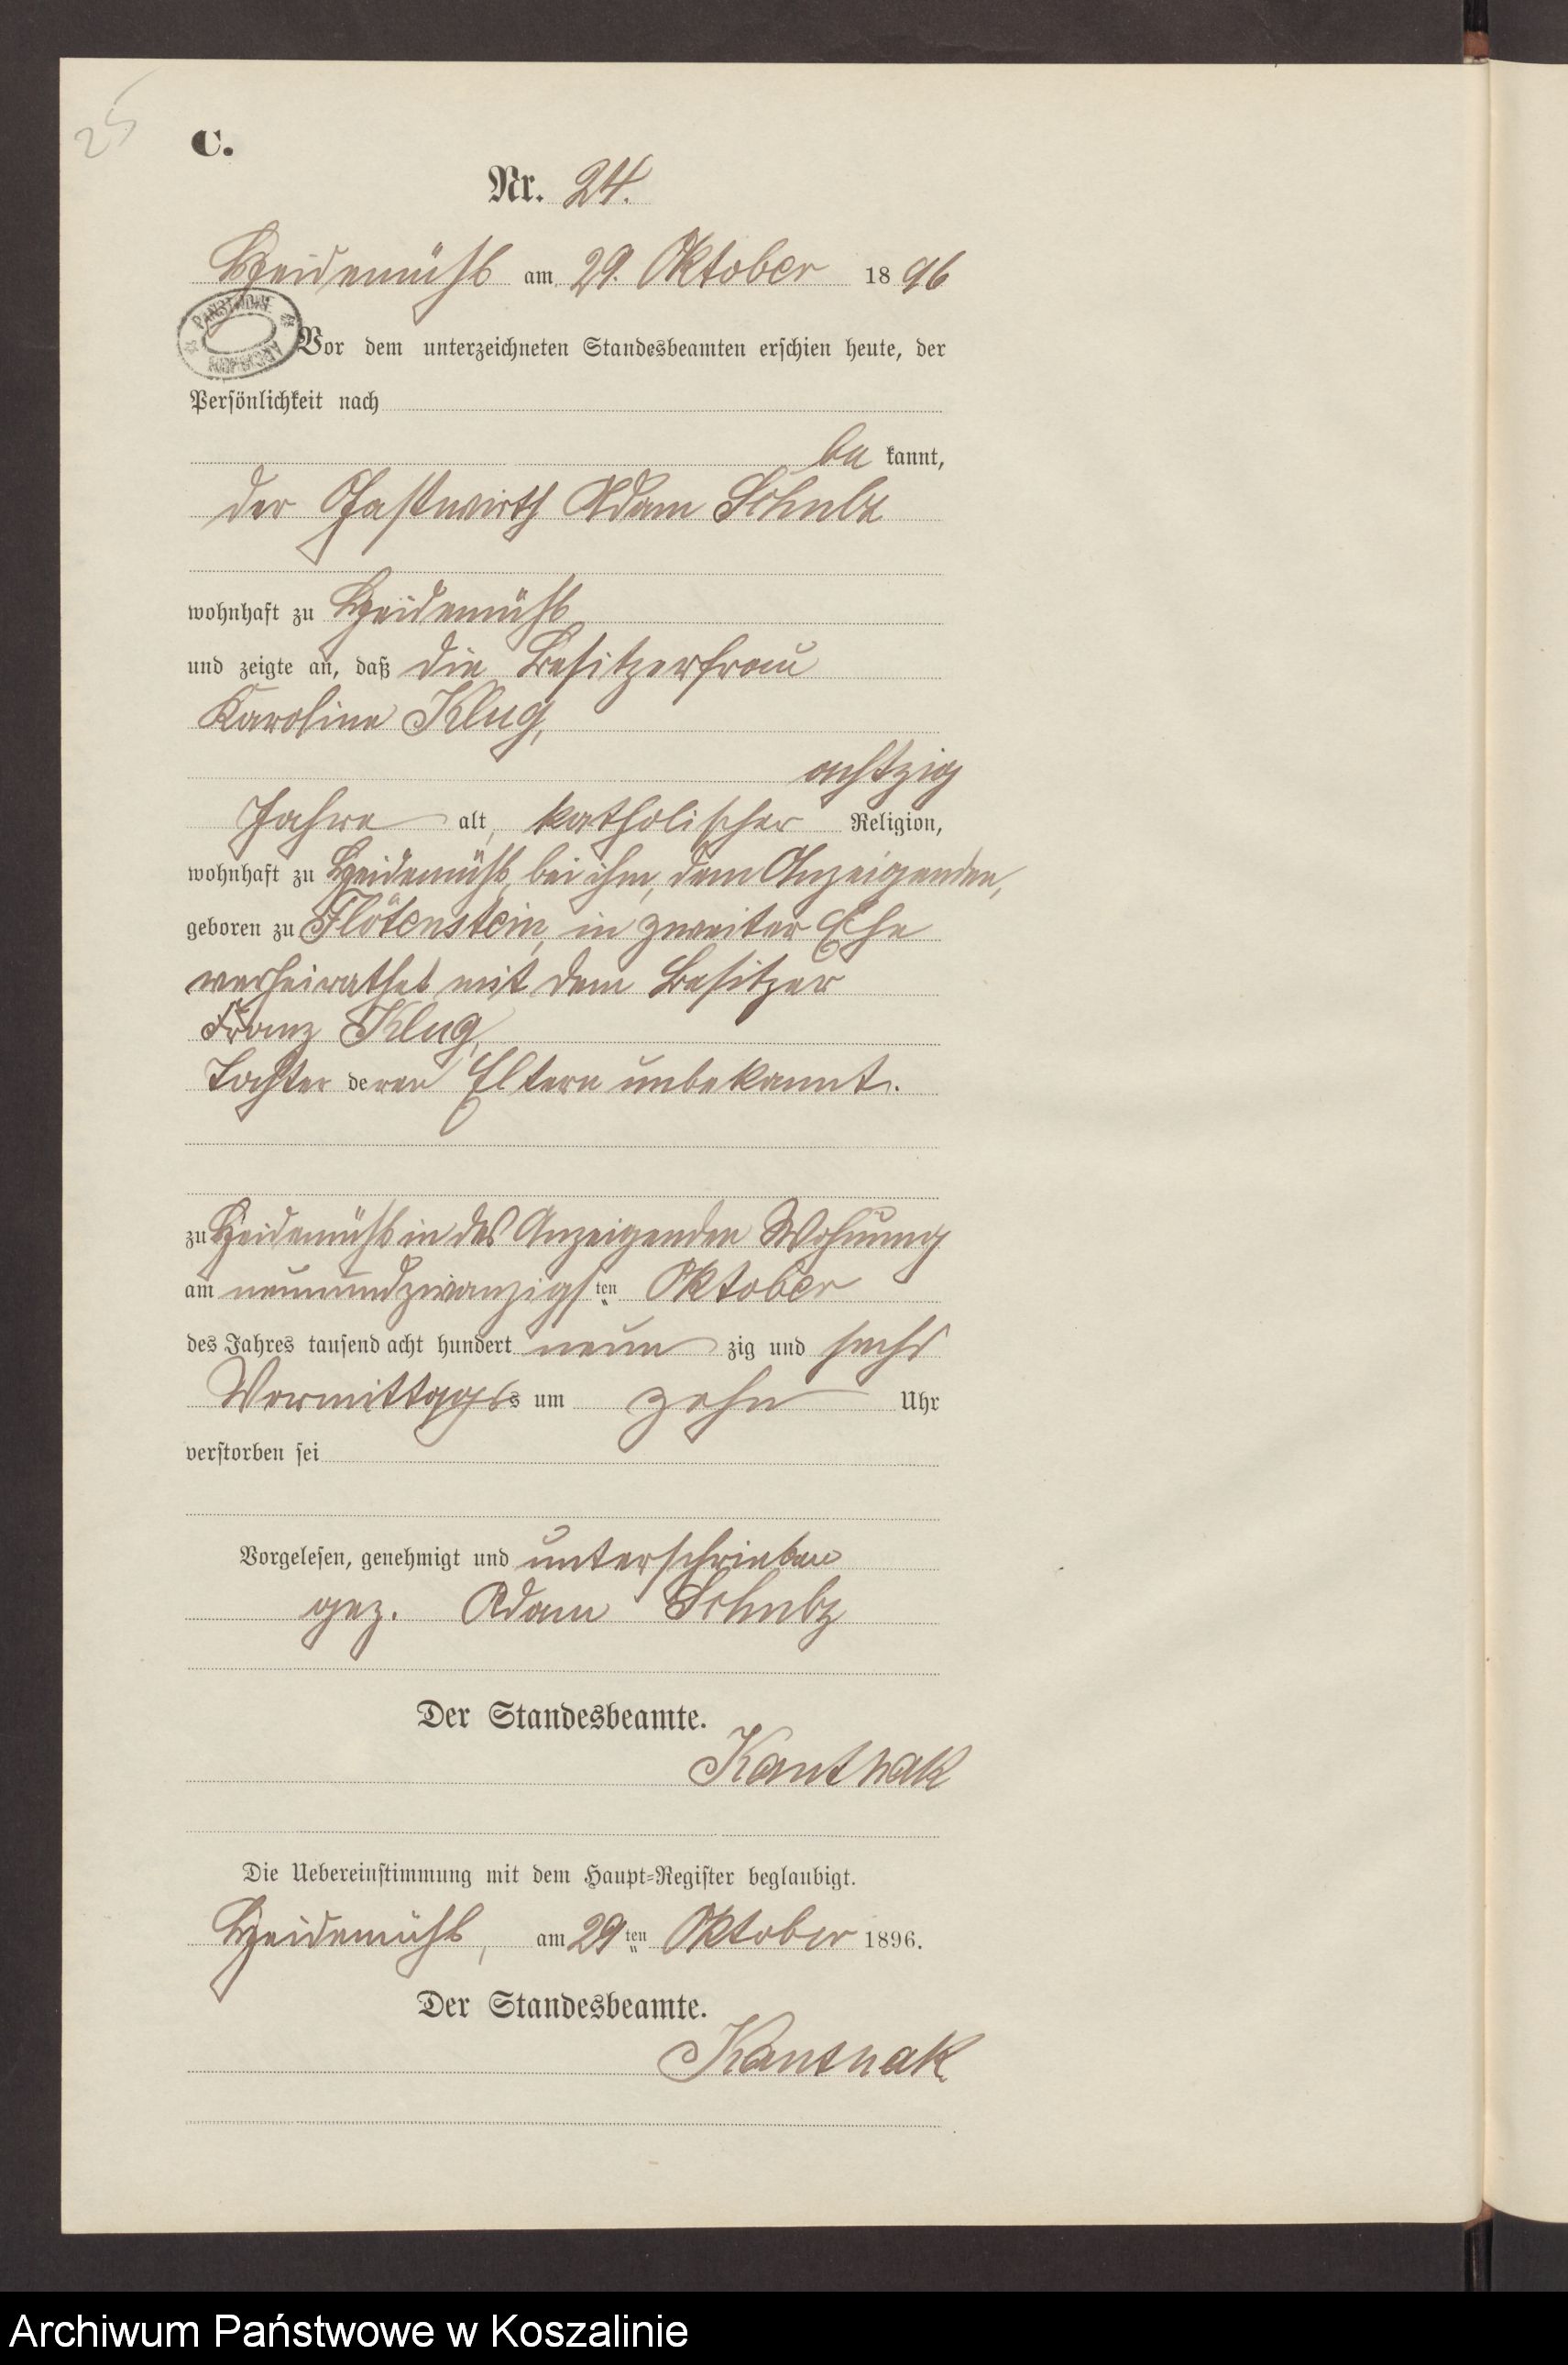 25
C.
Nr. 24.
Heidemühl am 29. Oktober 1896
PAŃSTWOWE
Vor dem unterzeichneten Standesbeamten erschien heute, der
Persönlichkeit nach
be kannt,
der Gastwirth Adam Schulz
wohnhaft zu Heidemühl
und zeigte an, daß die Besitzerfrau
Karoline Klug,
achtzig
Jahre alt, katholischer Religion,
wohnhaft zu Heidemühl, bei ihm, dem Anzeigenden,
geboren zu Flötenstein, in zweiter Ehe
verheirathet mit dem Besitzer
Franz Klug,
Tochter deren Eltern unbekannt.
zu Heidemühl in des Anzeigenden Wohnung
am neunundzwanzigsten Oktober
des Jahres tausend acht hundert neun zig und sechs
Vormittags um zehn Uhr
verstorben sei
Vorgelesen, genehmigt und unterschrieben
gez. Adam Schulz
Der Standesbeamte.
Die Uebereinstimmung mit dem Haupt-Register beglaubigt.
Heidemühl, am 29ten Oktober 1896.
Der Standesbeamte.
Archiwum Państwowe w Koszalinie